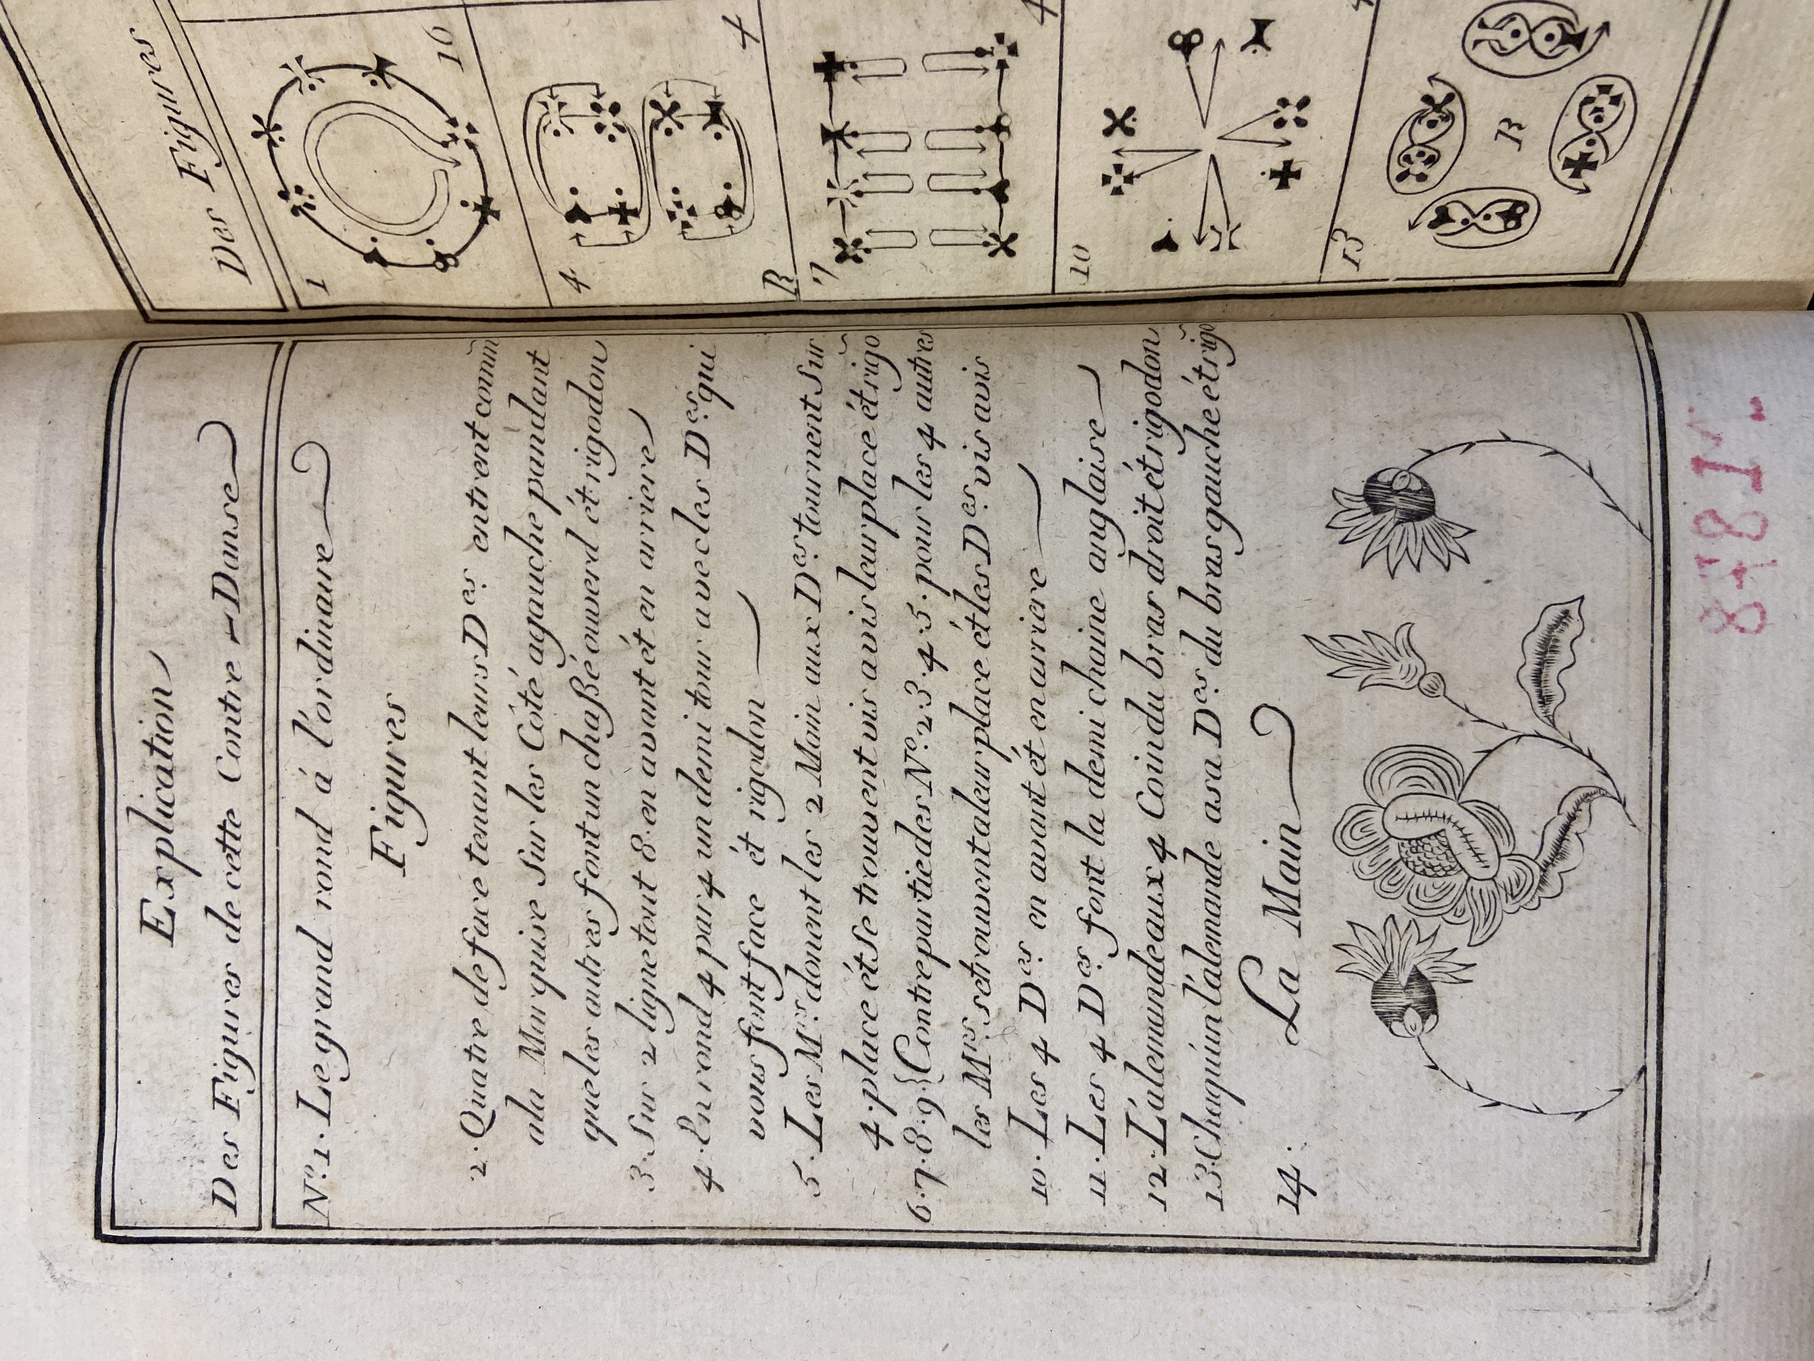 Explication
Des Figures de cette Contre-Danse
N.º 1. Le grand rond á l'ordinaire
Figures
2. Quatre de face tenant leurs D.es entrent comm̃
ala Marquise Sur les Côté agauche pandant
que les autres font un chaßé ouverd ét rigodon
3. Sur 2 ligne tout 8. en avant ét en arriere
4. En rond 4 par 4 un demi tour avec les D.es qui
vous font face ét rigodon
5. Les M.rs donent les 2 Main aux D.es tournent Sur
4. place ét Se trouvent vis avis leur place ét rigo
6. 7. 8. 9 { Contre partie des N.º 2 3. 4 5. pour les 4 autres
les M.rs se trouvent a leur place ét les D.es vis avis
10. Les 4 D.es en avant ét en arriere
11. Les 4 D.es font la demi chaine anglaise
12. L'alemande aux 4 Coin du bras droit ét rigodon
13. Chaquin l'alemande asa D.es du bras gauche ét rigo
14. La Main
8481
Des Figures
1
16
4
4
R
7
4
10
13
R